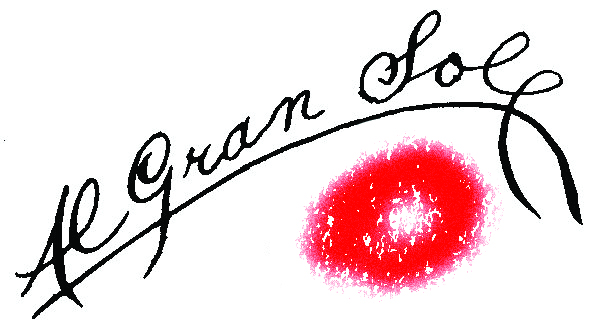 Al Gran Sole